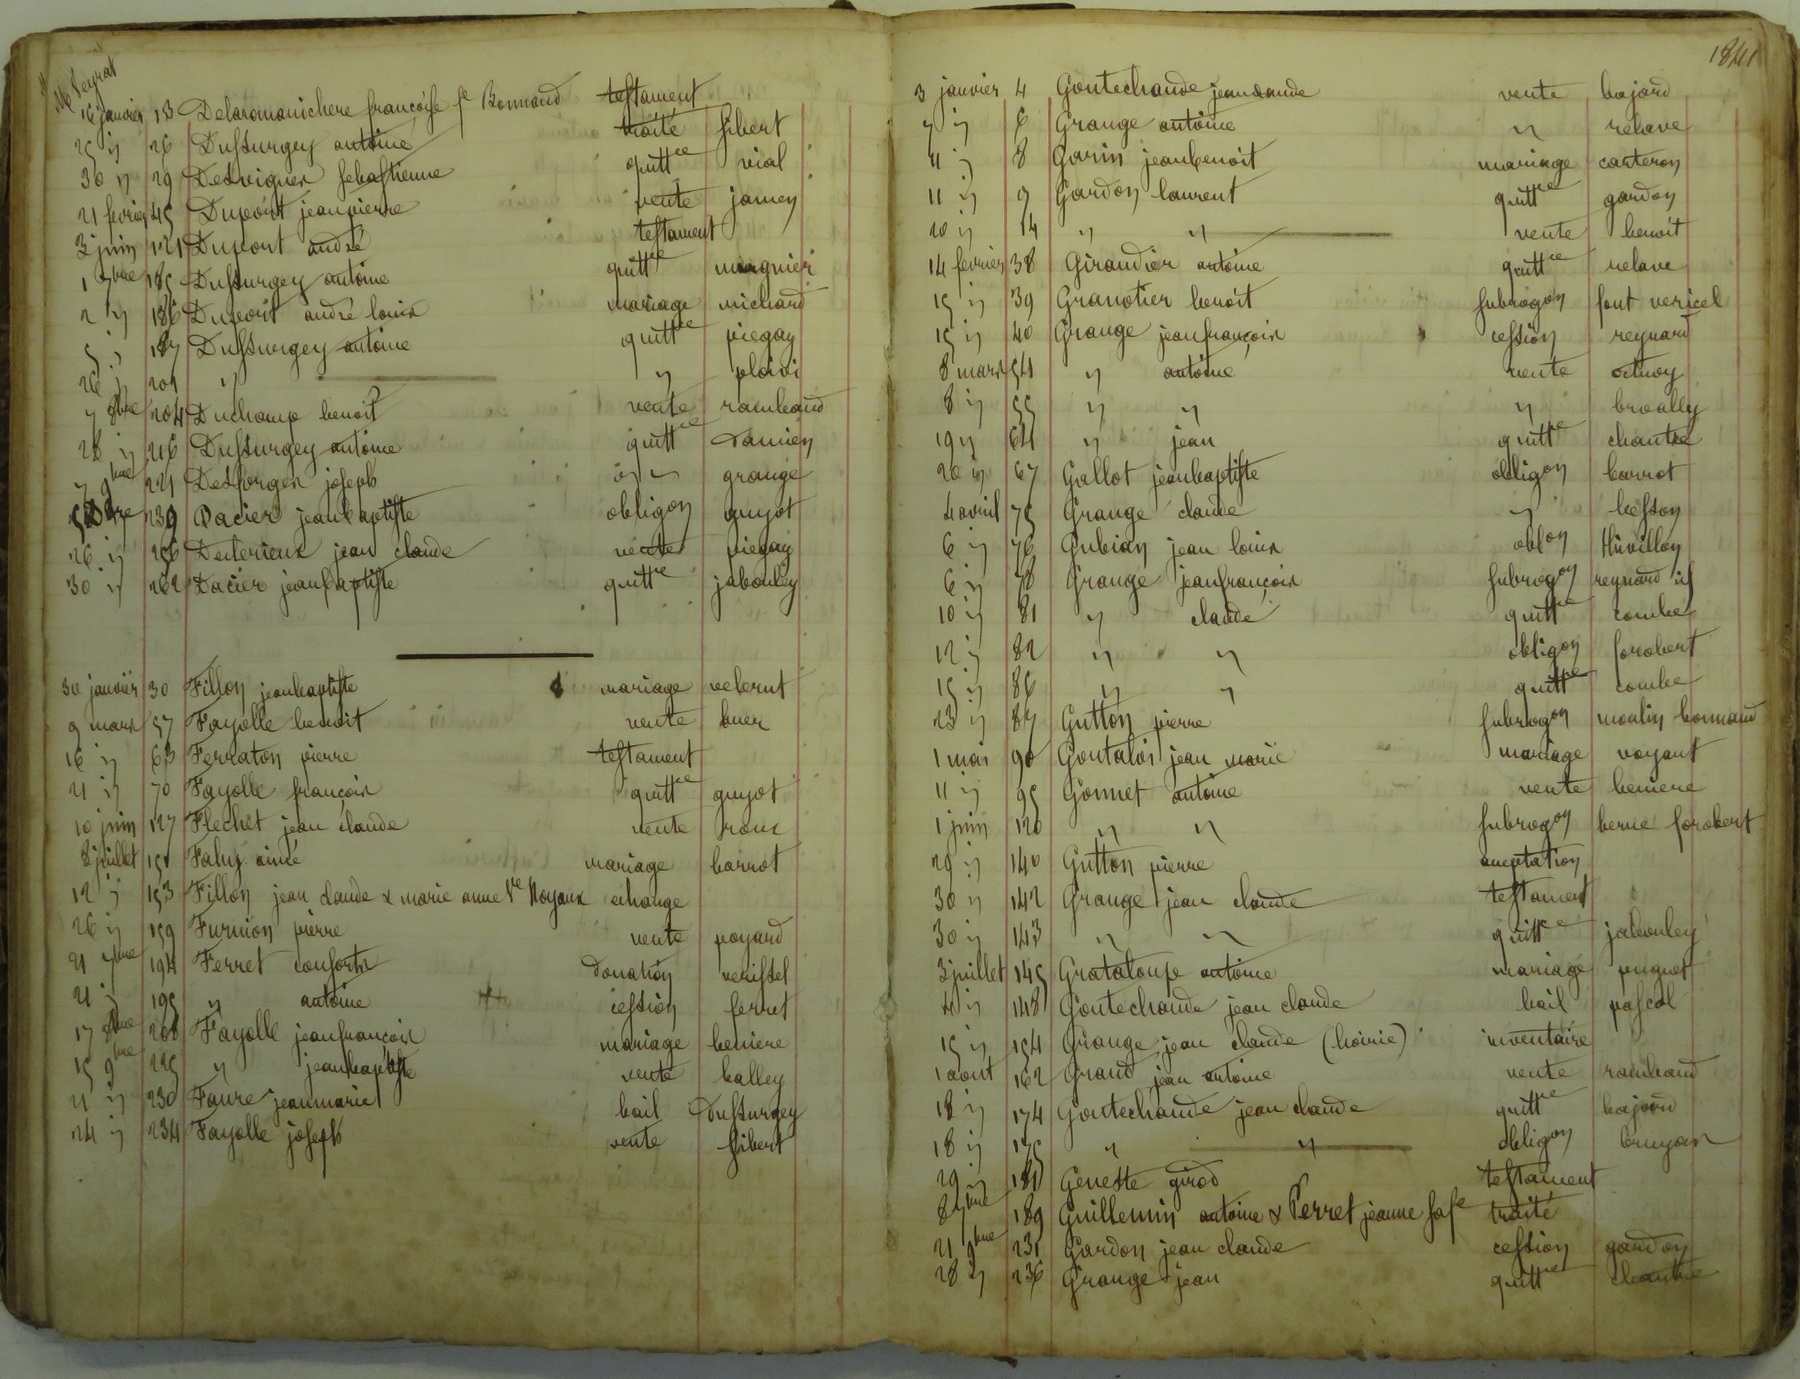 Me Peyrat
16 janvier 13 Delaromanichere françoise fe Bonnand testament
25 " 26 Dussurgey antoine traité gibert
30 " 29 Desvignes sebastienne quittce vial
21 fevrier 45 Dupont jeanpierre vente jamey
3 juin 121 Dupont andré testament
1 7bre 185 Dussurgey antoine quittce
2 " 186 Dupont andré louis mariage michard
5 " 187 Dussurgey antoine quittce piegay
26 " 201 " " ploivi
7 8bre 204 Duchamp benoit vente rambaud
28 " 216 Dussurgey antoine quittce damien
7 9bre 221 Desforges joseph " " grange
239 Dacier jeanbaptiste obligon guyot
26 " 256 Desterieux jean claude vente piegay
30 " 262 Dacier jeanbaptiste quittce jabouley
30 janvier 30 Fillon jeanbaptiste mariage velerut
9 mars 57 Fayolle benoit vente buer
16 " 63 Ferraton pierre testament
21 " 70 Fayolle françois quittce guyot
10 juin 127 Flechet jean claude vente roux
8 juillet 151 Faluy aimé mariage barrot
12 " 153 Fillon jean claude & marie anne Ve Noyaux echange
26 " 159 Furnion pierre vente poyard
21 7bre 194 Ferret consorts Donation verissel
21 " 195 " antoine cession ferret
17 8bre 208 Fayolle jeanfrançois mariage beniere
15 9bre 225 " jeanbaptiste vente balley
21 " 230 Faure jeanmarie bail Dussurgey
24 " 234 Fayolle joseph vente gibert
1841
3 janvier 4 Goutechaude jeanclaude vente bajard
7 " 6 Grange antoine " relave
11 " 8 Garin jeanbenoit mariage carteron
11 " 9 Gardon laurent quittce gardon
20 " 14 " " vente benoit
14 fevrier 38 Giraudier antoine quittce relave
15 " 39 Granotier benoit subrogon font vericel
15 " 40 Grange jeanfrançois cession reynard
8 mars 54 " antoine vente
8 " 55 " " " broally
19 " 64 " jean quittce chantre
20 " 67 Gallot jeanbaptiste obligon barrot
4 avril 75 Grange claude " besson
6 " 76 Gubian jean louis oblon thivillon
6 " 78 Grange jeanfrançois subrogon reynard
10 " 81 " claude quittce combe
12 " 82 " " obligon forobert
15 " 86 " " quittce combe
23 " 87 Gutton pierre subrogon moulin bonnand
1 mai 90 Goutalois jean marie mariage voyant
11 " 95 Gonnet antoine vente beniere
1 juin 120 " " subrogon berne forobert
29 " 140 Gutton pierre acceptation
30 " 142 Grange jean claude testament
30 " 143 " " quittce jabouley
3 juillet 145 Grataloup antoine mariage puguet
4 " 148 Goutechaude jean claude bail pascal
15 " 154 Grange jean claude (hoirie) inventaire
1 aout 162 Grand jean antoine vente rambaud
18 " 174 Goutechaude jean claude quittce bajard
18 " 175 " " obligon bruyas
29 " 181 Genette girod testament
8 7bre 189 Guillemin antoine & Perret jeanne sa fe traité
21 9bre 231 Gardon jean claude cession gardon
28 " 236 Grange jean quittce chantre